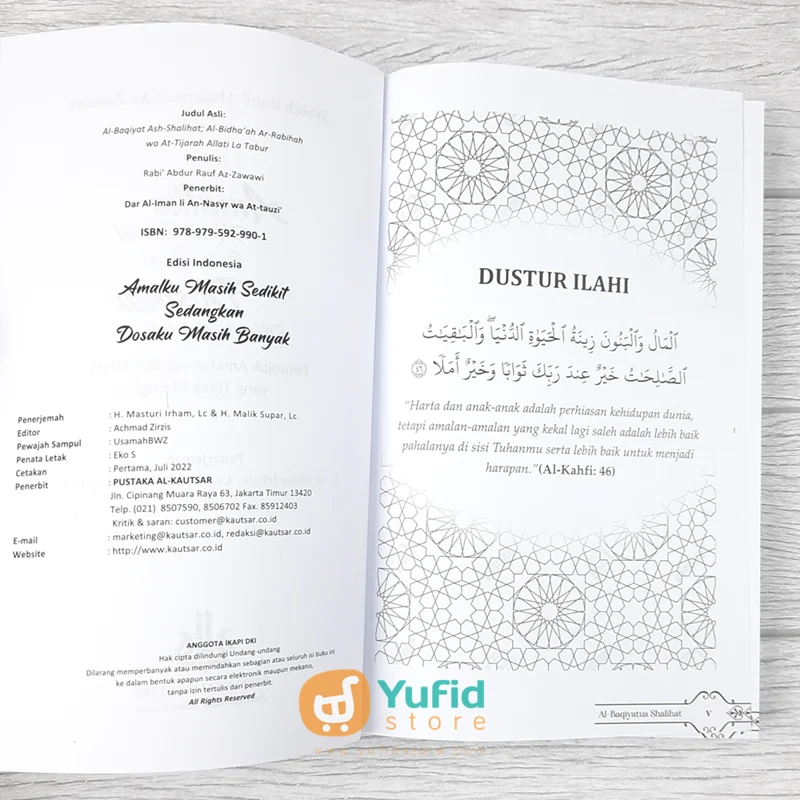 Judul Asli:
Al-Baqiyat Ash-Shalihat; Al-Bidha'ah Ar-Rabihah
wa At-Tijarah Allati La Tabur
Penulis:
Rabi' Abdur Rauf Az-Zawawi
Penerbit:
Dar Al-Iman li An-Nasyr wa At-tauzi'
ISBN: 978-979-592-990-1
Edisi Indonesia
Amalku Masih Sedikit
Sedangkan
Dosaku Masih Banyak
Penerjemah : H. Masturi Irham, Lc & H. Malik Supar, Lc.
Editor : Achmad Zirzis
Pewajah Sampul : UsamahBWZ
Penata Letak : Eko S
Cetakan : Pertama, Juli 2022
Penerbit : PUSTAKA AL-KAUTSAR
Jln. Cipinang Muara Raya 63, Jakarta Timur 13420
Telp. (021) 8507590, 8506702 Fax. 85912403
Kritik & saran: customer@kautsar.co.id
E-mail : marketing@kautsar.co.id, redaksi@kautsar.co.id
Website : http://www.kautsar.co.id
ANGGOTA IKAPI DKI
Hak cipta dilindungi Undang-undang
Dilarang memperbanyak atau memindahkan sebagian atau seluruh isi buku ini
ke dalam bentuk apapun secara elektronik maupun mekanis,
tanpa izin tertulis dari penerbit.
All Rights Reserved
DUSTUR ILAHI
ٱلْمَالُ وَٱلْبَنُونَ زِينَةُ ٱلْحَيَوٰةِ ٱلدُّنْيَا ۖ وَٱلْبَـٰقِيَـٰتُ
ٱلصَّـٰلِحَـٰتُ خَيْرٌ عِندَ رَبِّكَ ثَوَابًا وَخَيْرٌ أَمَلًا ﴿٤٦﴾
“Harta dan anak-anak adalah perhiasan kehidupan dunia,
tetapi amalan-amalan yang kekal lagi saleh adalah lebih baik
pahalanya di sisi Tuhanmu serta lebih baik untuk menjadi
harapan.”(Al-Kahfi: 46)
Al-Baqiyatus Shalihat V
Yufid
store